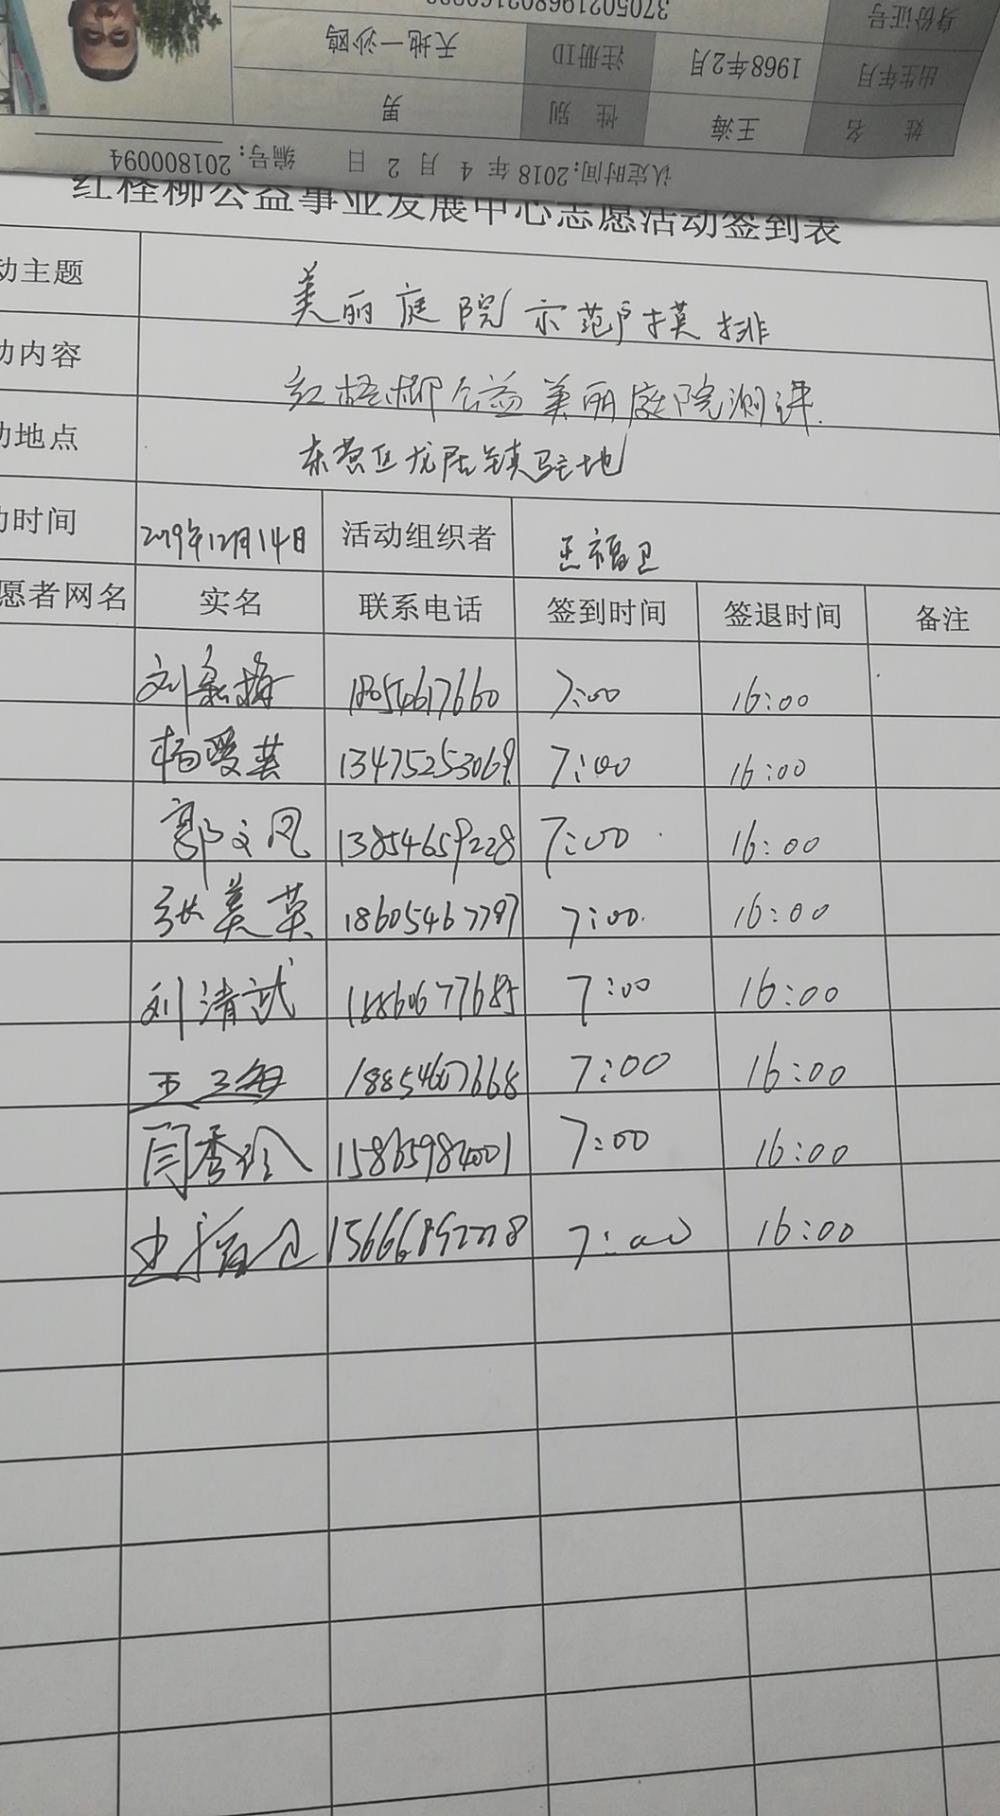 身份证号 370502196802160
出生年月 1968年2月 注册ID 天地一沙鸥
姓 名 王海 性 别 男
认定时间:2018 年 4 月 2 日 编号:201800094
红柽柳公益事业发展中心志愿活动签到表
动主题 美丽庭院示范户摸排
动内容 红柽柳公益美丽庭院测评
动地点 东营区龙居镇驻地
动时间 2019年12月14日 活动组织者 王福卫
愿者网名 实名 联系电话 签到时间 签退时间 备注
刘 梅 18054617660 7:00 16:00
杨爱芸 13475253069 7:00 16:00
郭文凤 13854659228 7:00 16:00
张美英 18605467797 7:00 16:00
刘清武 18860677685 7:00 16:00
王海 18854607668 7:00 16:00
闫秀玲 7:00 16:00
7:00 16:00